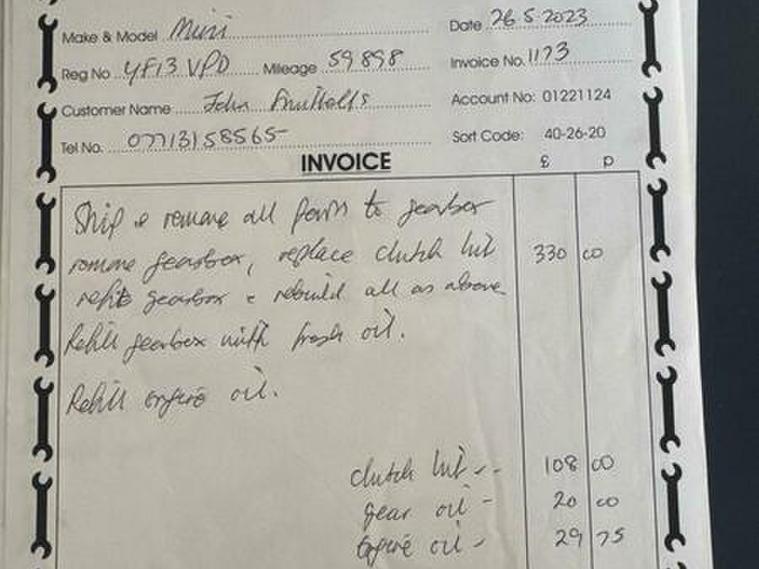 Make & Model Mini Date 26 5 2023
Reg No YF13 VPD Mileage 59898 Invoice No. 1173
Customer Name John Account No: 01221124
Tel No. 07713158565 Sort Code: 40-26-20
INVOICE £ p
Strip & remove all parts to gearbox
remove gearbox, replace clutch kit 330 00
refit gearbox & rebuild all as above
Refill gearbox with fresh oil.
Refill engine oil.
clutch kit -- 108 00
gear oil - 20 00
Engine oil - 29 75